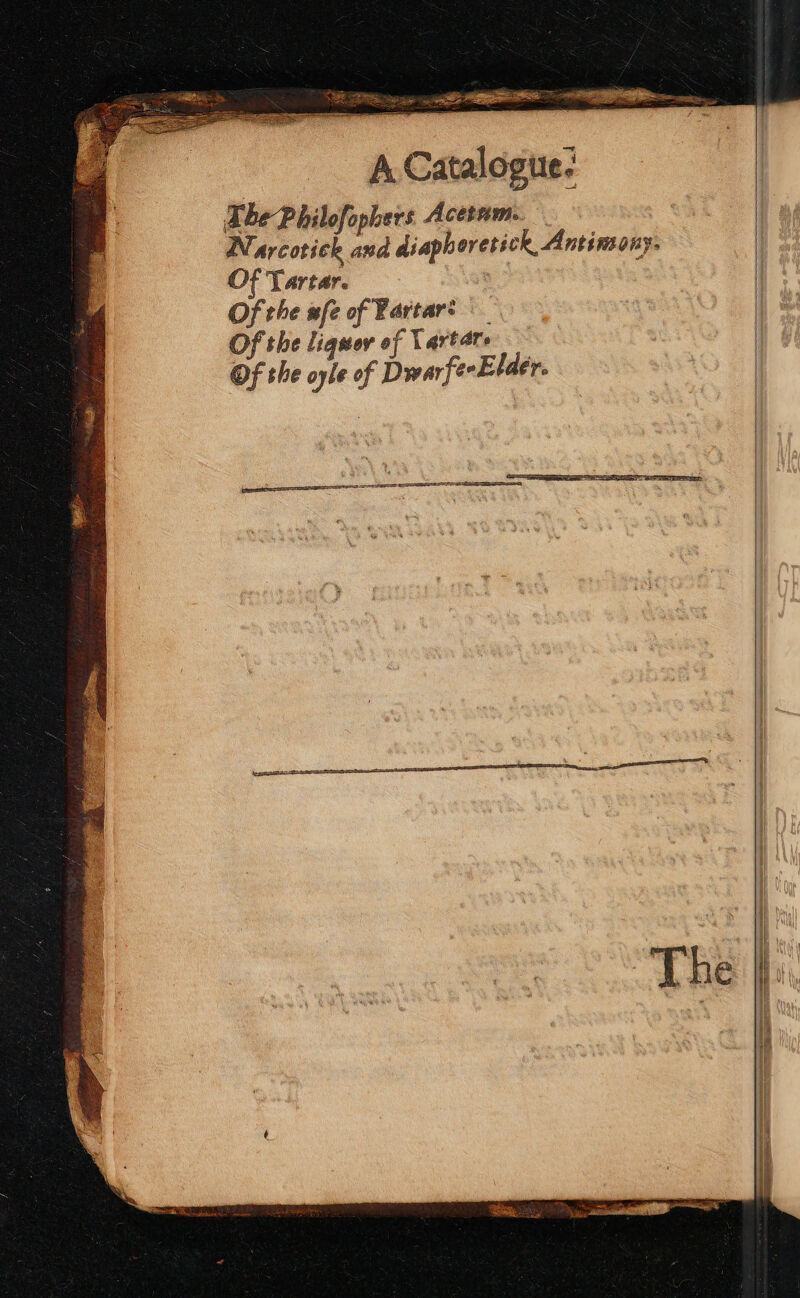 A Catalogue.
The Philoſophers Acetum.
Narcotick and diaphoretick Antimony.
Of Tartar.
Of the uſe of Tartar:
Of the liquor of Tartar.
Of the oyle of Dwarfe-Elder.
The